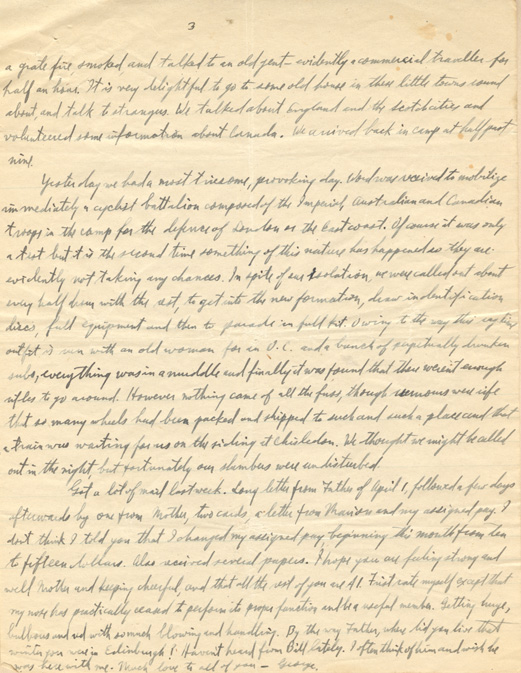 3
a grate fire smoked, and talked to an old gent - evidently a commercial traveller for
half an hour. It is very delightful to go to some old house in these little towns round
about, and talk to strangers. We talked about England and the Scotch cities and
volunteered some information about Canada. We arrived back in camp at half past
nine.
Yesterday we had a most tiresome, provoking day. Word was received to mobilize
immediately a cyclist battalion composed of the Imperial, Australian and Canadian
troops in the camp for the defense of London or the East coast. Of course it was only
a test but it is the second time something of this nature has happened so they are
evidently not taking any chances. In spite of our isolation, we were called out about
every half hour with the rest, to get into the new formation, draw indentification
discs, full equipment and then to parade in full kit. Owing to the way this
outfit is run with an old woman for in O.C. and a bunch of perpetually drunken
subs, everything was in a muddle and finally it was found that there weren't enough
rifles to go around. However nothing came of all the fuss, though rumours were rife
that so many wheels had been packed and shipped to such and such a place and that
a train was waiting for us on the siding at Chiseldon. We thought we might be called
out in the night but fortunately our slumbers were undisturbed.
Got a lot of mail last week. Long letter from Father of April 1, followed a few days
afterwards by one from Mother, two cards, a letter from Marion and my assigned pay. I
don't think I told you that I changed my assigned pay beginning this month from ten
to fifteen dollars. Also received several papers. I hope you are feeling strong and
well Mother and keeping cheerful, and that all the rest of you are A1. First rate myself except that
my nose has practically ceased to perform its proper function and be a useful member. Getting huge,
bulbous and red with so much blowing and handling. By the way Father, where did you live that
winter you were in Edinburgh? Haven't heard from Bill lately. I often think of him and wish he
was here with me. Much love to all of you - George.